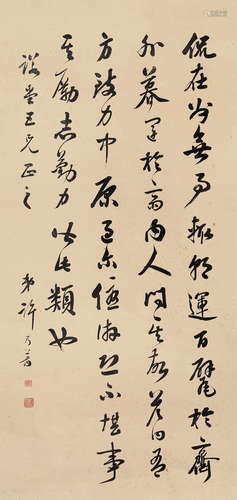 侃在州無事輒朝運百甓於齋
外暮運於齋內人問其故答曰吾
方致力中原過爾優游恐不堪事
其勵志勤力皆此類也
堂五兄正之
弟許乃普